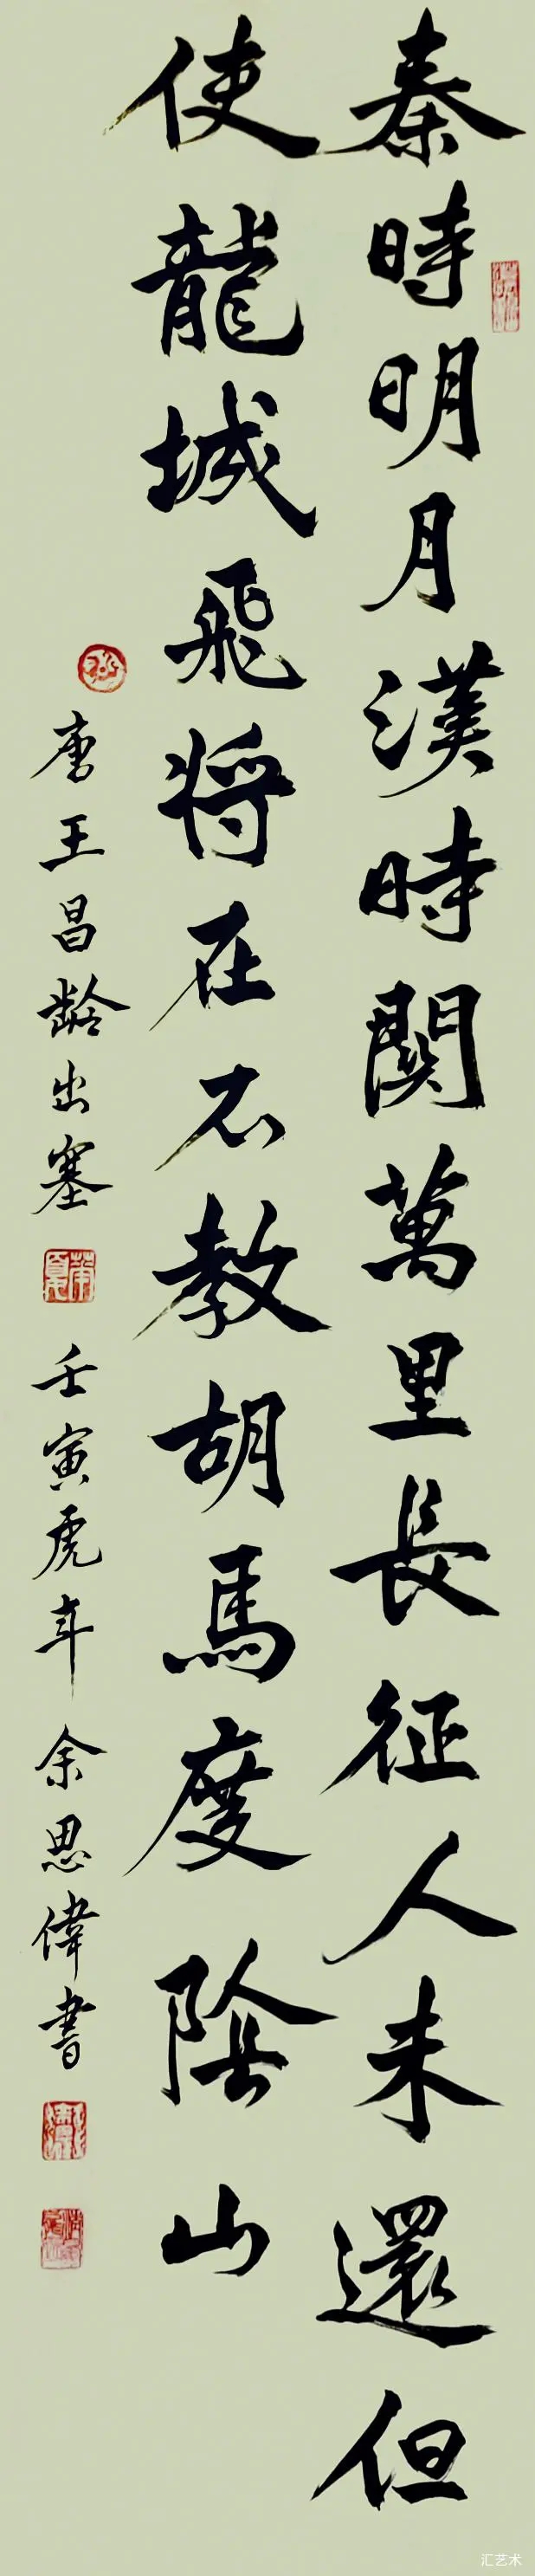 秦時明月漢時関萬里長征人未還但
使龍城飛将在不教胡馬度陰山
唐王昌齡出塞
壬寅虎年余思偉書
汇艺术